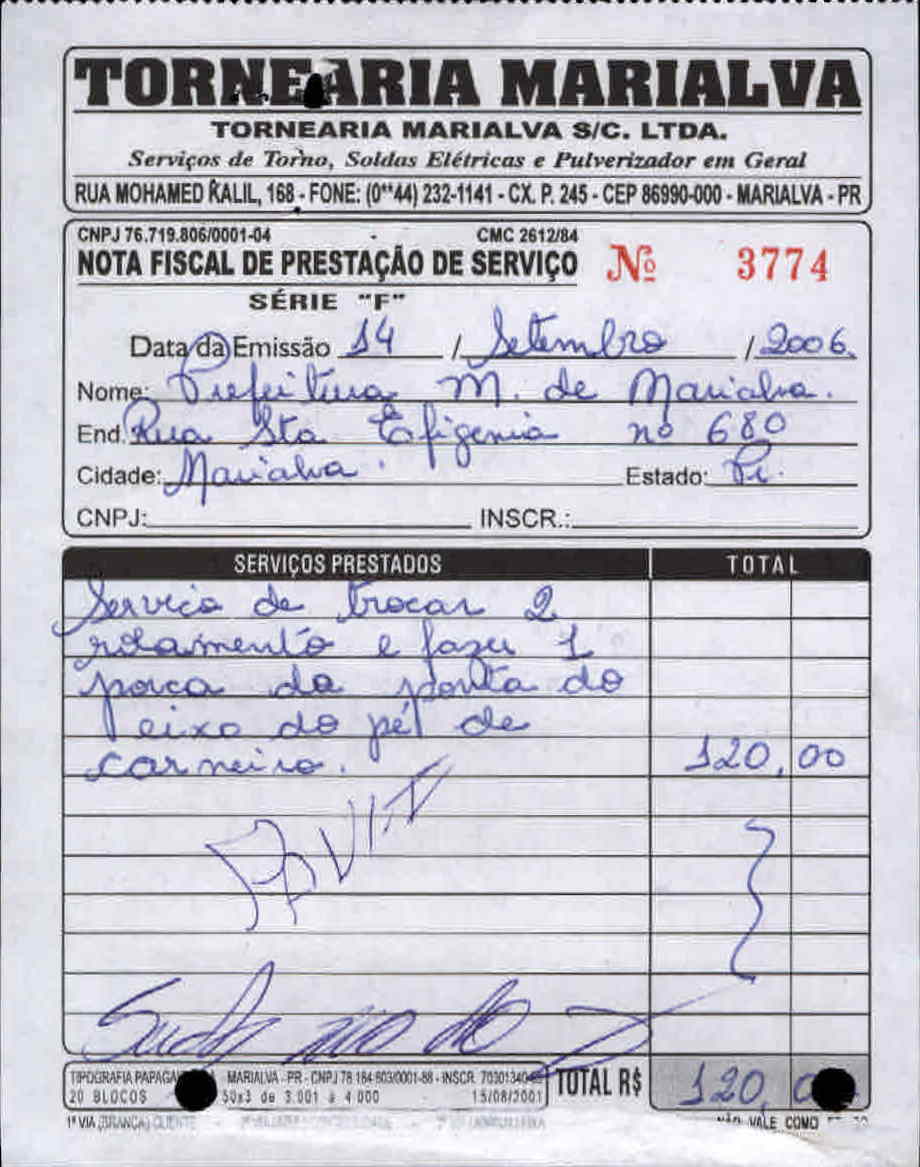 TORNEARIA MARIALVA
TORNEARIA MARIALVA S/C. LTDA.
Serviços de Torno, Soldas Elétricas e Pulverizador em Geral
RUA MOHAMED KALIL, 168 - FONE: (0**44) 232-1141 - CX. P. 245 - CEP 86990-000 - MARIALVA - PR
CNPJ 76.719.806/0001-04 CMC 2612/84
NOTA FISCAL DE PRESTAÇÃO DE SERVIÇO Nº 3774
SÉRIE "F"
Data da Emissão 14 / Setembro / 2006.
Nome: Prefeitura M. de Marialva.
End. Rua Sta Efigenia nº 680
Cidade: Marialva. Estado: Pr.
CNPJ: INSCR.:
SERVIÇOS PRESTADOS TOTAL
Servico de trocar 2
rolamento e fazer 1
porca da ponta do
eixo do pé de
carneiro. 120,00
TIPOGRAFIA MARIALVA - PR - CNPJ 78 184 603/0001-88 - INSCR.
20 BLOCOS 50x3 de 3.001 a 4.000 15/08/2001
TOTAL R$ 120,
1ª VIA (BRANCA) CLIENTE
NÃO VALE COMO